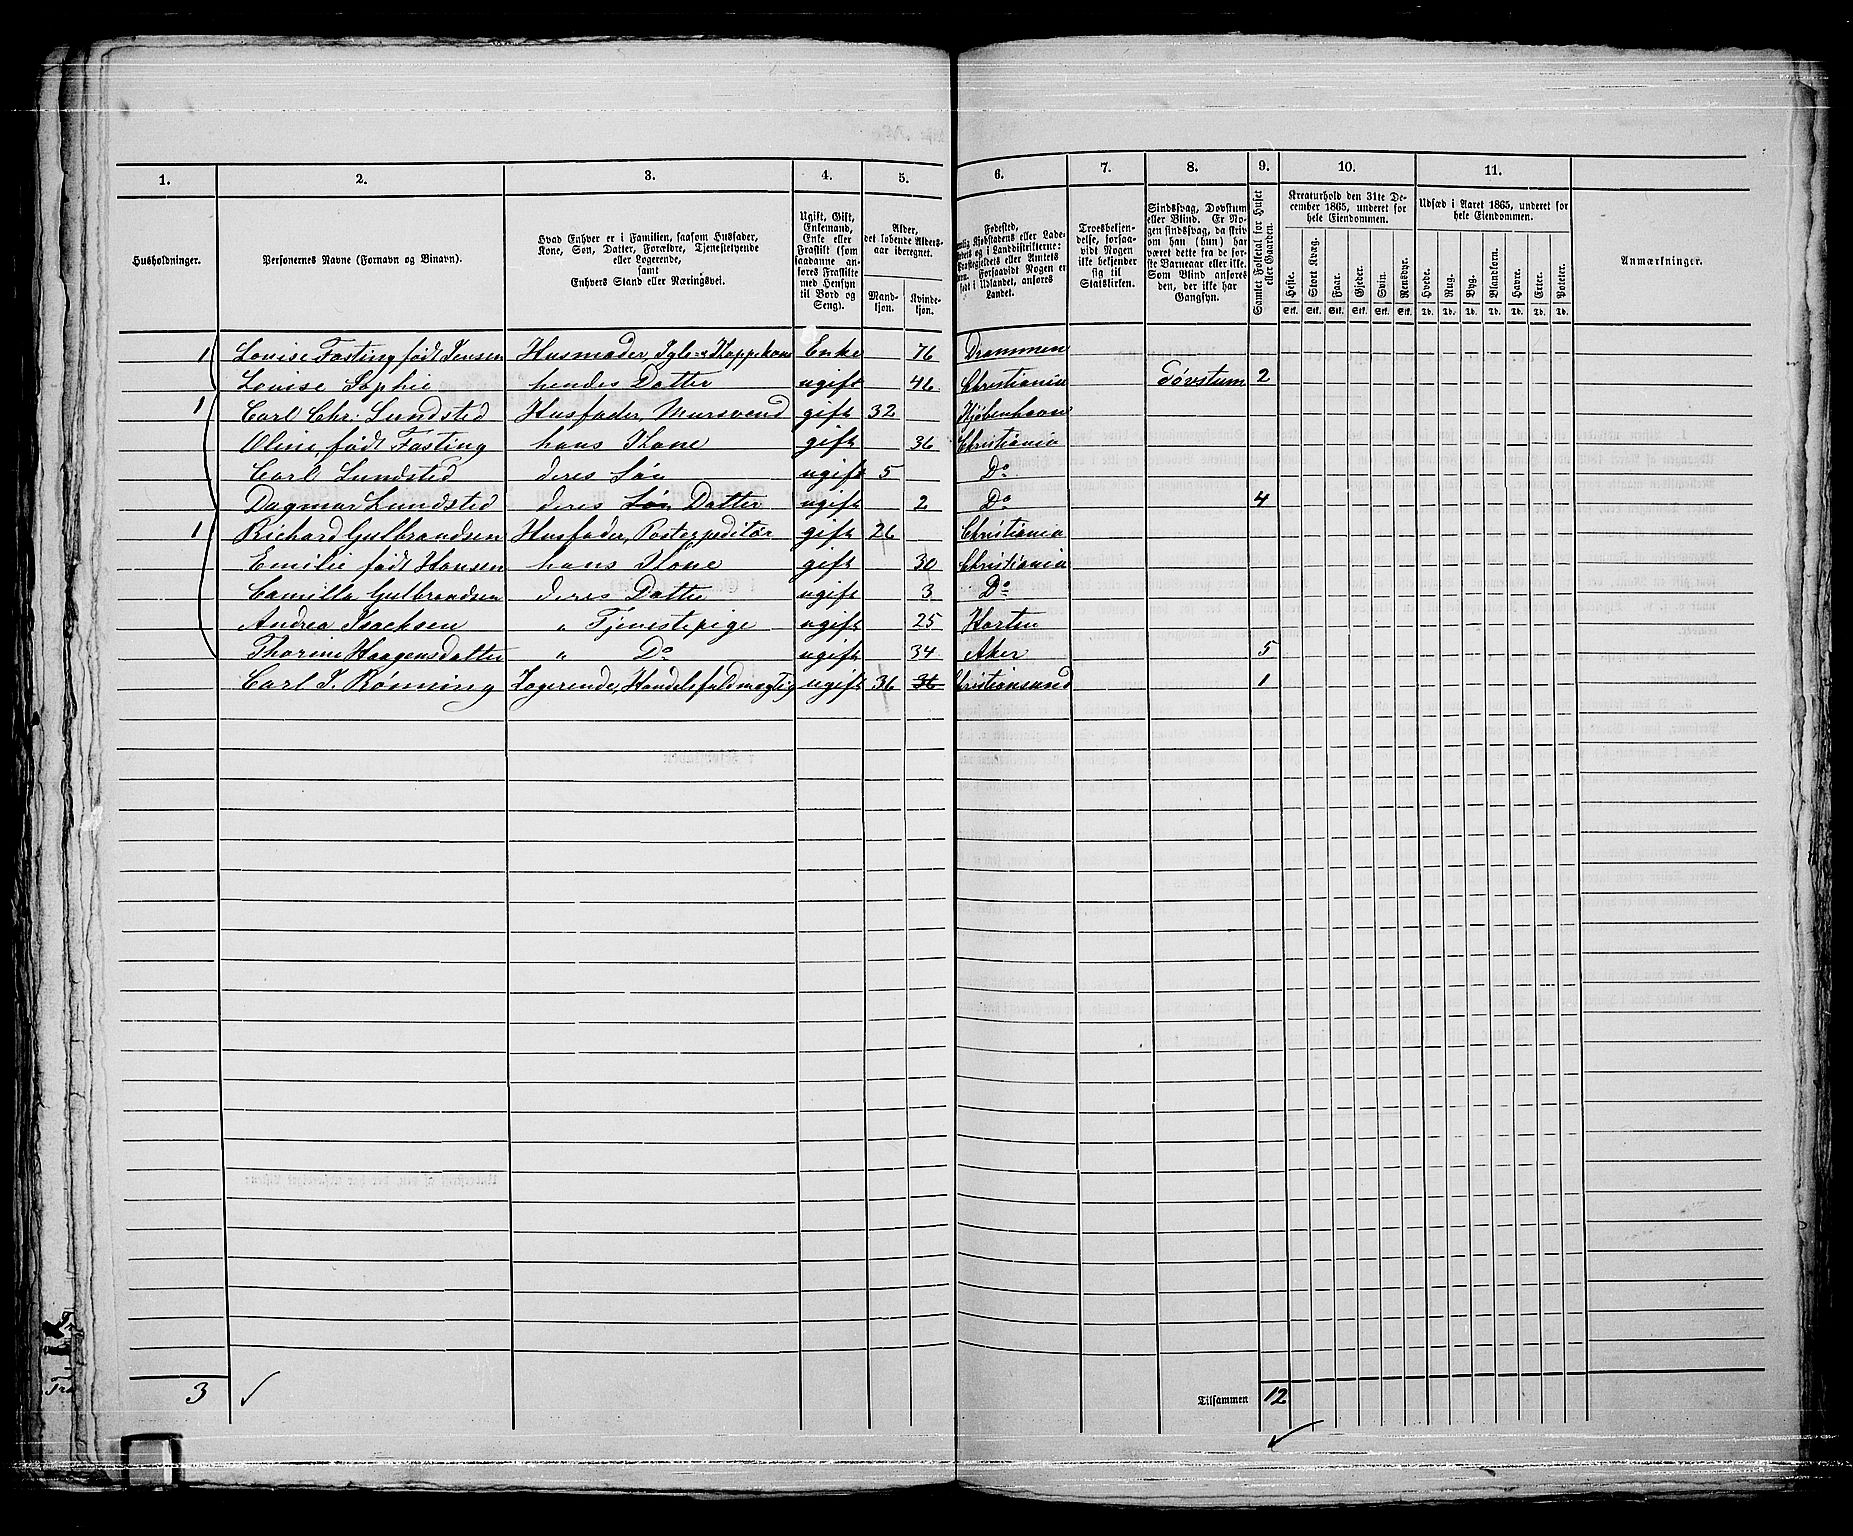 1. 2. 3. 4. 5. 6. 7. 8. 9. 10. 11.
Husholdninger.
Personernes Navne (Fornavn og Binavn).
Hvad Enhver er i Familien, saasom Husfader,
Kone, Søn, Datter, Forældre, Tjenestetyende
eller Logerende,
samt
Enhvers Stand eller Næringsvei.
Ugift, Gift,
Enkemand,
Enke eller
Fraskilt (som
saadanne an-
føres Fraskilte
med Hensyn
til Bord og
Seng).
Alder,
det løbende Alders-
aar iberegnet.
Mand-
kjøn.
Kvinde-
kjøn.
Fødested,
Kjøbstadens eller Lade-
og i Landdistrikterne:
eller Amtets
Forsaavidt Nogen er
født i Udlandet, anføres
Landet.
Troesbekjen-
delse, forsaa-
vidt Nogen
ikke bekjender
sig til
Statskirken.
Sindssvag, Døvstum
eller Blind. Er No-
gen sindssvag, da skriv
om han (hun) har
været dette fra de for-
ste Barneaar eller ikke.
Som Blind anføres
den, der ikke har
Gangsyn.
Samlet Folketal for Huset
eller Gaarden.
Kreaturhold den 31te De-
cember 1865, underet for
hele Eiendommen.
Heste. Stort Kvæg. Faar. Gjeder. Svin. Rensdyr.
Stk. Stk. Stk. Stk. Stk. Stk.
Udsæd i Aaret 1865, underet for
hele Eiendommen.
Hvede. Rug. Byg. Blandkorn. Havre. Erter. Poteter.
Td. Td. Td. Td. Td. Td. Td.
Anmærkninger.
1 Louise Fasting født Jensen Husmoder, Igle- & Koppekone Enke 76 Drammen
Louise Sophie hendes Datter ugift 46 Christiania Døvstum 2
1 Carl Chr. Lundsted Husfader, Mursvend gift 32 Kjøbenhavn
Oline, født Fasting hans Kone gift 36 Christiania
Carl Lundsted deres Søn ugift 5 Do
Dagmar Lundsted deres Søn Datter ugift 2 Do 4
1 Richard Gulbrandsen Husfader, Postexpeditør gift 26 Christiania
Emilie født Hansen hans Kone gift 30 Christiania
Camilla Gulbrandsen deres Datter ugift 3 Do
Andrea Isachsen " Tjenestepige ugift 25 Horten
Thorine Haagensdatter " Do ugift 34 Aker 5
Carl J. Rønning Logerende, Handelsfuldmægtig ugift 36 36 Christiansund 1
3
Tilsammen 12